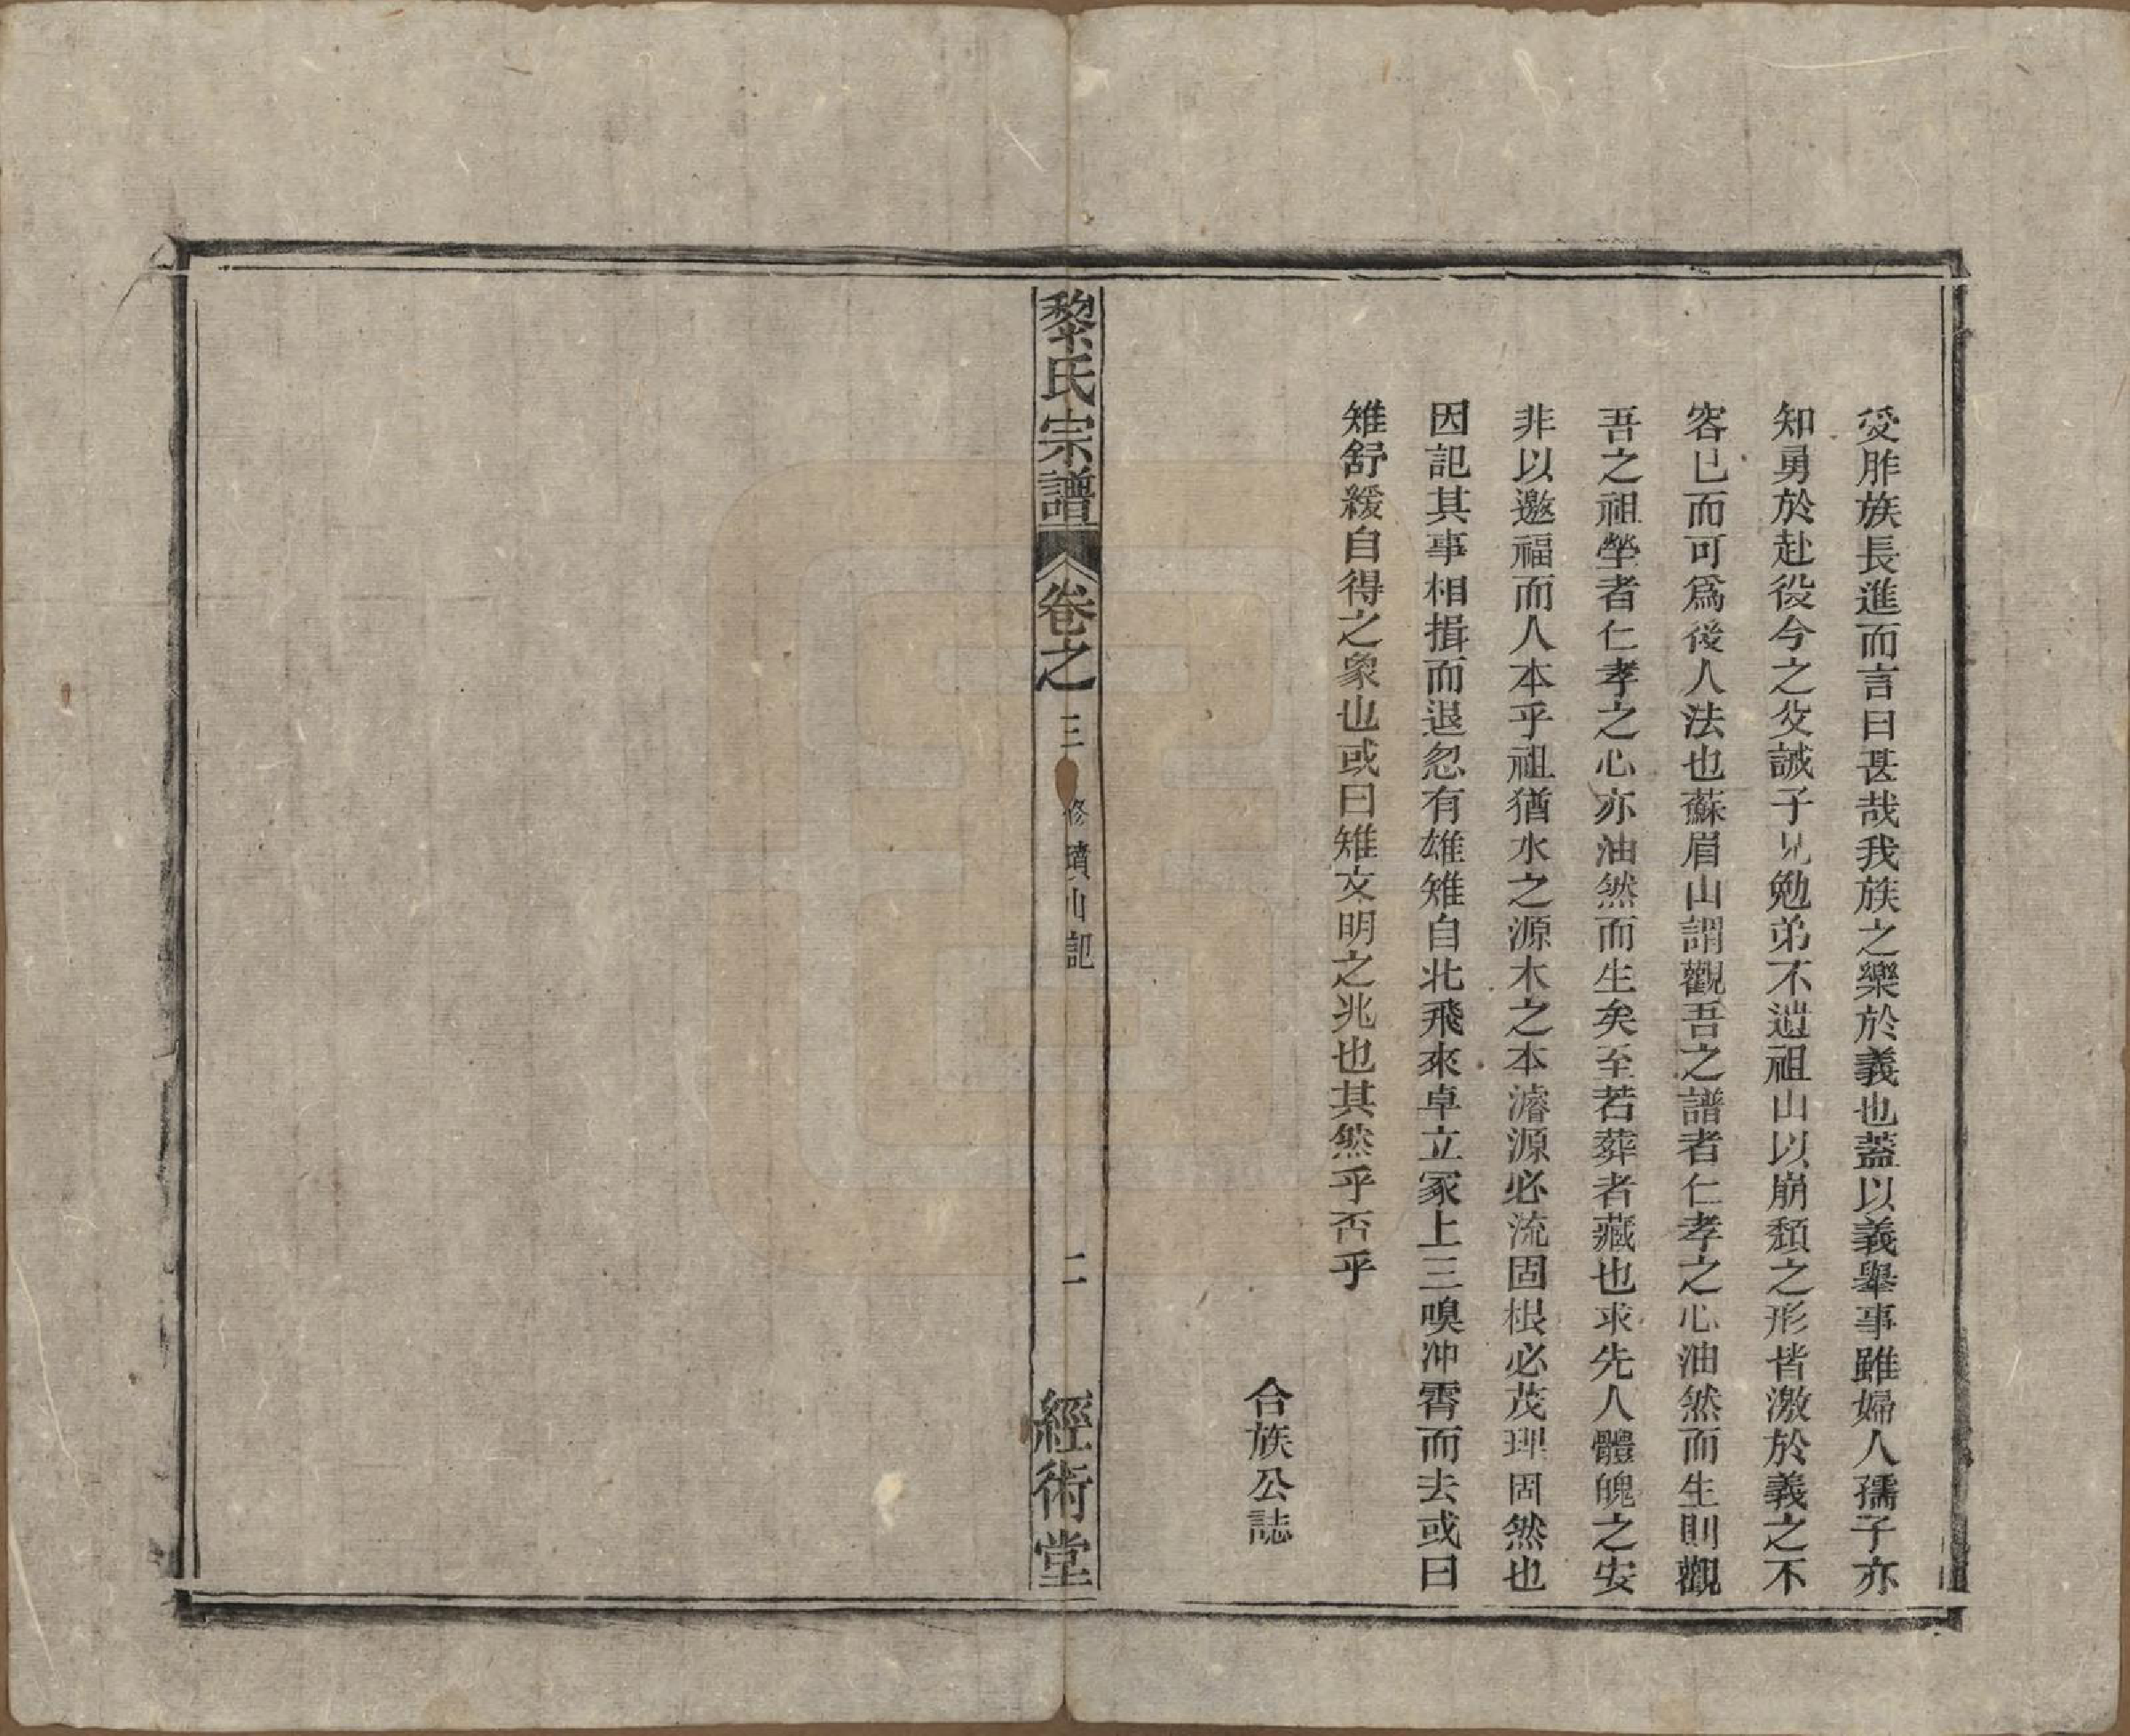 受胙族長進而言曰甚哉我族之樂於義也蓋以義舉事雖婦人孺子亦
知勇於赴役今之父誡子兄勉弟不遺祖山以崩頽之形皆激於義之不
容已而可爲後人法也蘇眉山謂觀吾之譜者仁孝之心油然而生則觀
吾之祖塋者仁孝之心亦油然而生矣至若葬者藏也求先人體魄之安
非以邀福而人本乎祖猶水之源木之本濬源必流固根必茂理固然也
因記其事相揖而退忽有雄雉自北飛來卓立冢上三嗅冲霄而去或曰
雉舒緩自得之象也或曰雉文明之兆也其然乎否乎
合族公誌
黎氏宗譜 卷之三 修墳山記 二 經術堂